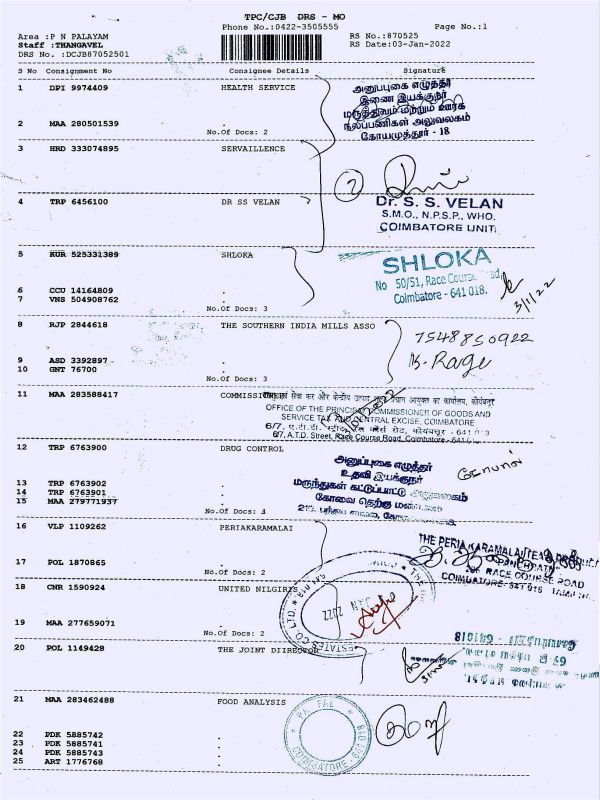 TPC/CJB DRS - MO
Phone No.:0422-3505555
Page No.:1
Area :P N PALAYAM
RS No.:870525
Staff :THANGAVEL
RS Date:03-Jan-2022
DRS No. :DCJB87052501
S No Consignment No Consignee Details Signature
1 DPI 9974409 HEALTH SERVICE
அனுப்புகை எழுத்தர்
இணை இயக்குநர்
மருத்துவம் மற்றும் ஊரக
நலப்பணிகள் அலுவலகம்
கோயமுத்தூர் - 18
2 MAA 280501539 .
No.Of Docs: 2
3 HRD 333074895 SERVAILLENCE
2
4 TRP 6456100 DR SS VELAN
Dr. S. S. VELAN
S.M.O., N.P.S.P., WHO.
COIMBATORE UNIT
5 KUR 525331389 SHLOKA
SHLOKA
No 50/51, Race Course Road,
Coimbatore - 641 018.
3/1/22
6 CCU 14164809 .
7 VNS 504908762 .
No.Of Docs: 3
8 RJP 2844618 THE SOUTHERN INDIA MILLS ASSO
7548850922
9 ASD 3392897 .
10 GNT 76700 .
No.Of Docs: 3
11 MAA 283588417 COMMISSIONER
OFFICE OF THE PRINCIPAL COMMISSIONER OF GOODS AND
SERVICE TAX AND CENTRAL EXCISE, COIMBATORE
6/7, A.T.D. Street, Race Course Road, Coimbatore - 641 018
12 TRP 6763900 DRUG CONTROL
அனுப்புகை எழுத்தர்
உதவி இயக்குநர்
மருந்துகள் கட்டுப்பாட்டு அலுவலகம்
13 TRP 6763902 .
14 TRP 6763901 .
15 MAA 279771937 .
No.Of Docs: 4
16 VLP 1109262 PERIAKARAMALAI
THE PERIA KARAMALAI TEA & PRODUCE
RACE COURSE ROAD
COIMBATORE-641 018
17 POL 1870865 .
No.Of Docs: 2
18 CNR 1590924 UNITED NILGIRIS
JAN 2022
ESTATES CO LTD.
19 MAA 277659071 .
No.Of Docs: 2
20 POL 1149428 THE JOINT DIIRECTOR
21 MAA 283462488 FOOD ANALYSIS
COIMBATORE
22 PDK 5885742 .
23 PDK 5885741 .
24 PDK 5885743 .
25 ART 1776768 .